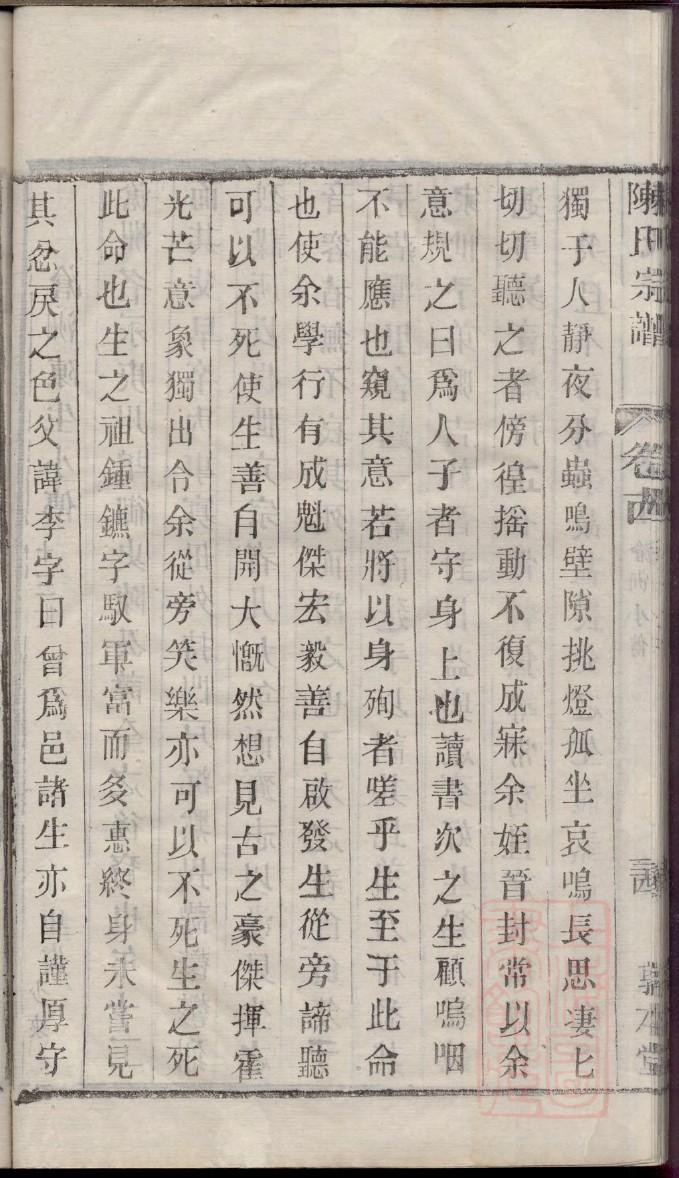 陳氏宗譜
卷四
獨于人靜夜分蟲鳴壁隙挑燈孤坐哀鳴長思凄匕
切切聽之者傍徨揺動不復成寐余姪晉封常以余
意規之曰爲人子者守身上也讀書次之生顧嗚咽
不能應也窺其意若將以身殉者嗟乎生至于此命
也使余學行有成魁傑宏毅善自啟發生從旁諦聽
可以不死使生善自開大慨然想見古之豪傑揮霍
光芒意象獨出令余從旁笑樂亦可以不死生之死
此命也生之祖鍾鑣字馭軍富而多惠終身未嘗見
其忿戾之色父諱李字曰曾爲邑諸生亦自謹厚守